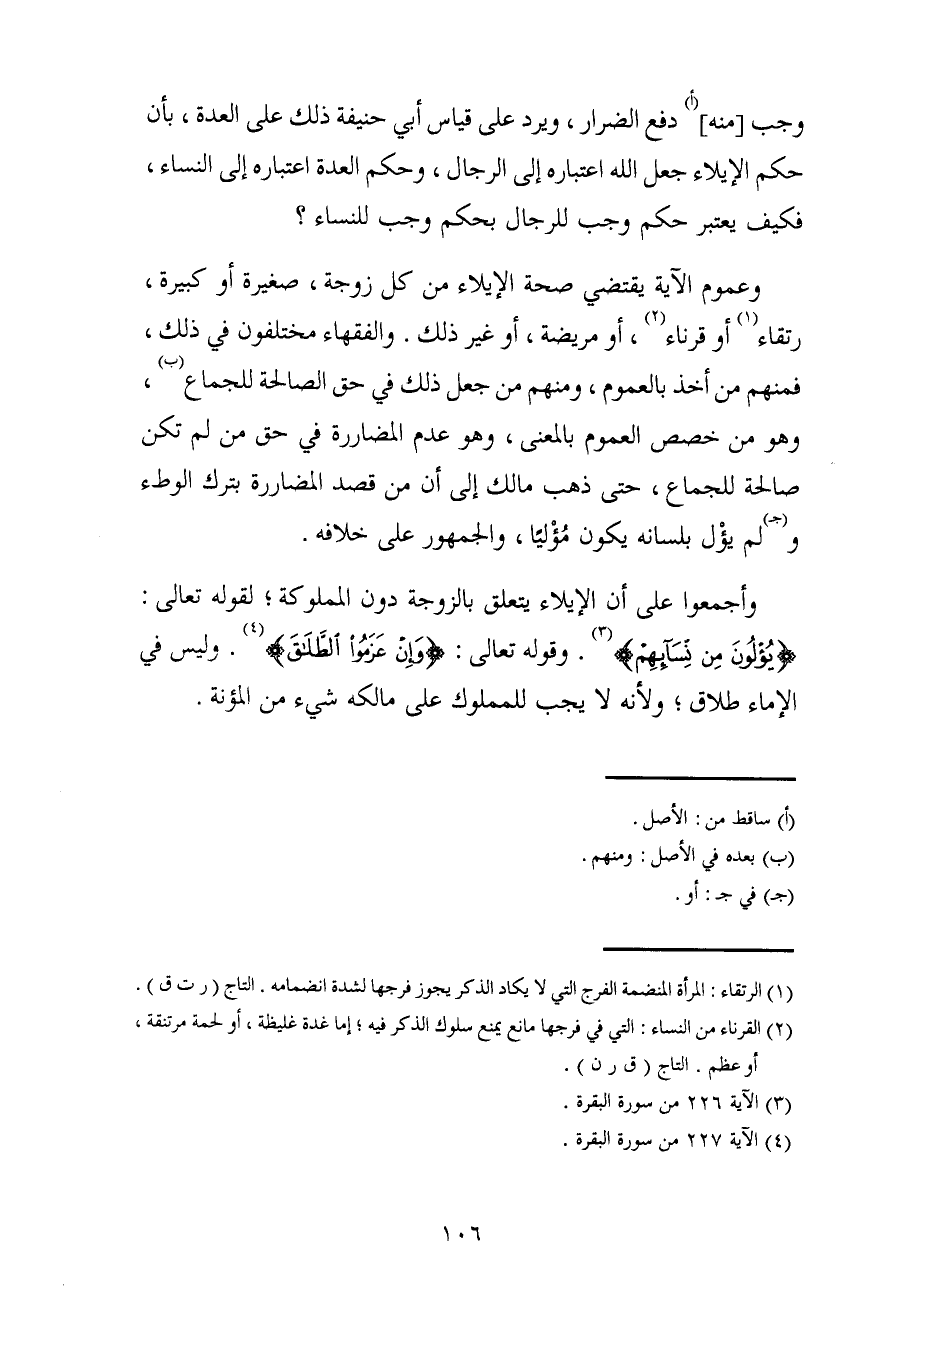 وجب [منه](أ) دفع الضرار ، ويرد على قياس أبي حنيفة ذلك على العدة ، بأن
حكم الإيلاء جعل الله اعتباره إلى الرجال ، وحكم العدة اعتباره إلى النساء ،
فكيف يعتبر حكم وجب للرجال بحكم وجب للنساء ؟
وعموم الآية يقتضي صحة الإيلاء من كل زوجة ، صغيرة أو كبيرة ،
رتقاء(١) أو قرناء(٢) ، أو مريضة ، أو غير ذلك . والفقهاء مختلفون في ذلك ،
فمنهم من أخذ بالعموم ، ومنهم من جعل ذلك في حق الصالحة للجماع(ب) ،
وهو من خصص العموم بالمعنى ، وهو عدم المضاررة في حق من لم تكن
صالحة للجماع ، حتى ذهب مالك إلى أن من قصد المضاررة بترك الوطء
و(جـ)لم يؤْل بلسانه يكون مُؤْليًا ، والجمهور على خلافه .
وأجمعوا على أن الإيلاء يتعلق بالزوجة دون المملوكة ؛ لقوله تعالى :
﴿يُؤْلُونَ مِن نِّسَآئِهِمْ﴾(٣) . وقوله تعالى : ﴿وَإِنْ عَزَمُوا۟ ٱلطَّلَـٰقَ﴾(٤) . وليس في
الإماء طلاق ؛ ولأنه لا يجب للمملوك على مالكه شيء من المؤنة .
(أ) ساقط من : الأصل .
(ب) بعده في الأصل : ومنهم .
(جـ) في جـ : أو .
(١) الرتقاء : المرأة المنضمة الفرج التي لا يكاد الذكر يجوز فرجها لشدة انضمامه . التاج ( ر ت ق ) .
(٢) القرناء من النساء : التي في فرجها مانع يمنع سلوك الذكر فيه ؛ إما غدة غليظة ، أو لحمة مرتتقة ،
أو عظم . التاج ( ق ر ن ) .
(٣) الآية ٢٢٦ من سورة البقرة .
(٤) الآية ٢٢٧ من سورة البقرة .
١٠٦